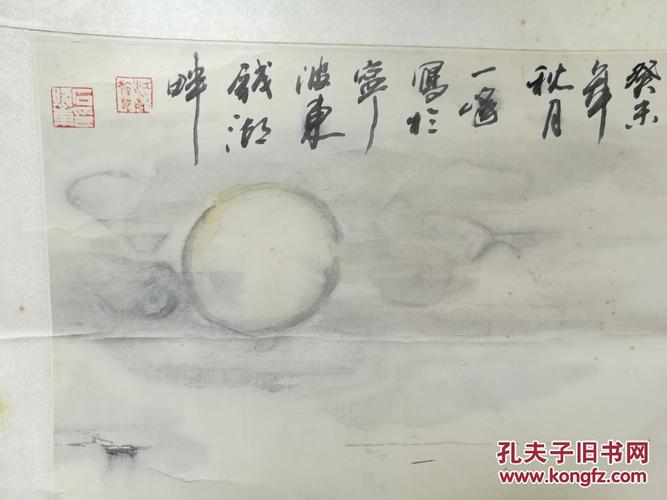 癸未
年
秋月
一
寫於
寧
波東
錢湖
畔
孔夫子旧书网
www.kongfz.com